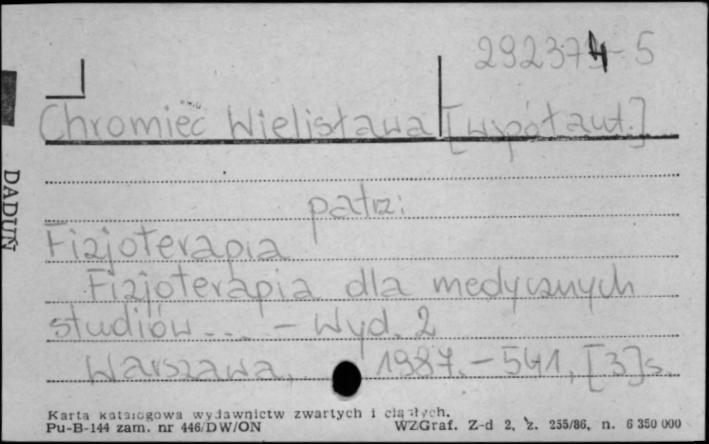 292374-5
Chromiec Wielisława [współaut.]
DADUŃ
patrz:
Fizjoterapia
Fizjoterapia dla medycznych
studiów... - Wyd. 2
Warszawa, 1987. - 541, [3]s.
Karta katalogowa wydawnictw zwartych i ciągłych.
Pu-B-144 zam. nr 446/DW/ON WZGraf. Z-d 2, z. 255/86, n. 6 350 000